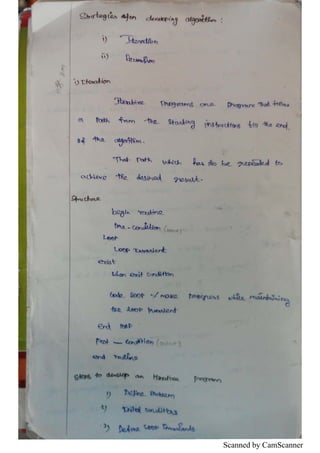 Strategies for developing algorithm :
i) Iteration
ii) Recursion
i) Iteration
Iterative Programs are Program that follow
a Path from the starting instructions to the end
of the algorithm.
That Path which has to be repeated to
achieve the desired result.
Structure
begin routine
Pre - condition
Loop
Loop invariant
exist
when exit condition
Code loop // make progress while maintaining
the loop invariant
end loop
Post - condition
end routine
Steps to develop an iterative program
1) Define Problem
2) conditions
3) Define Loop invariants
Scanned by CamScanner